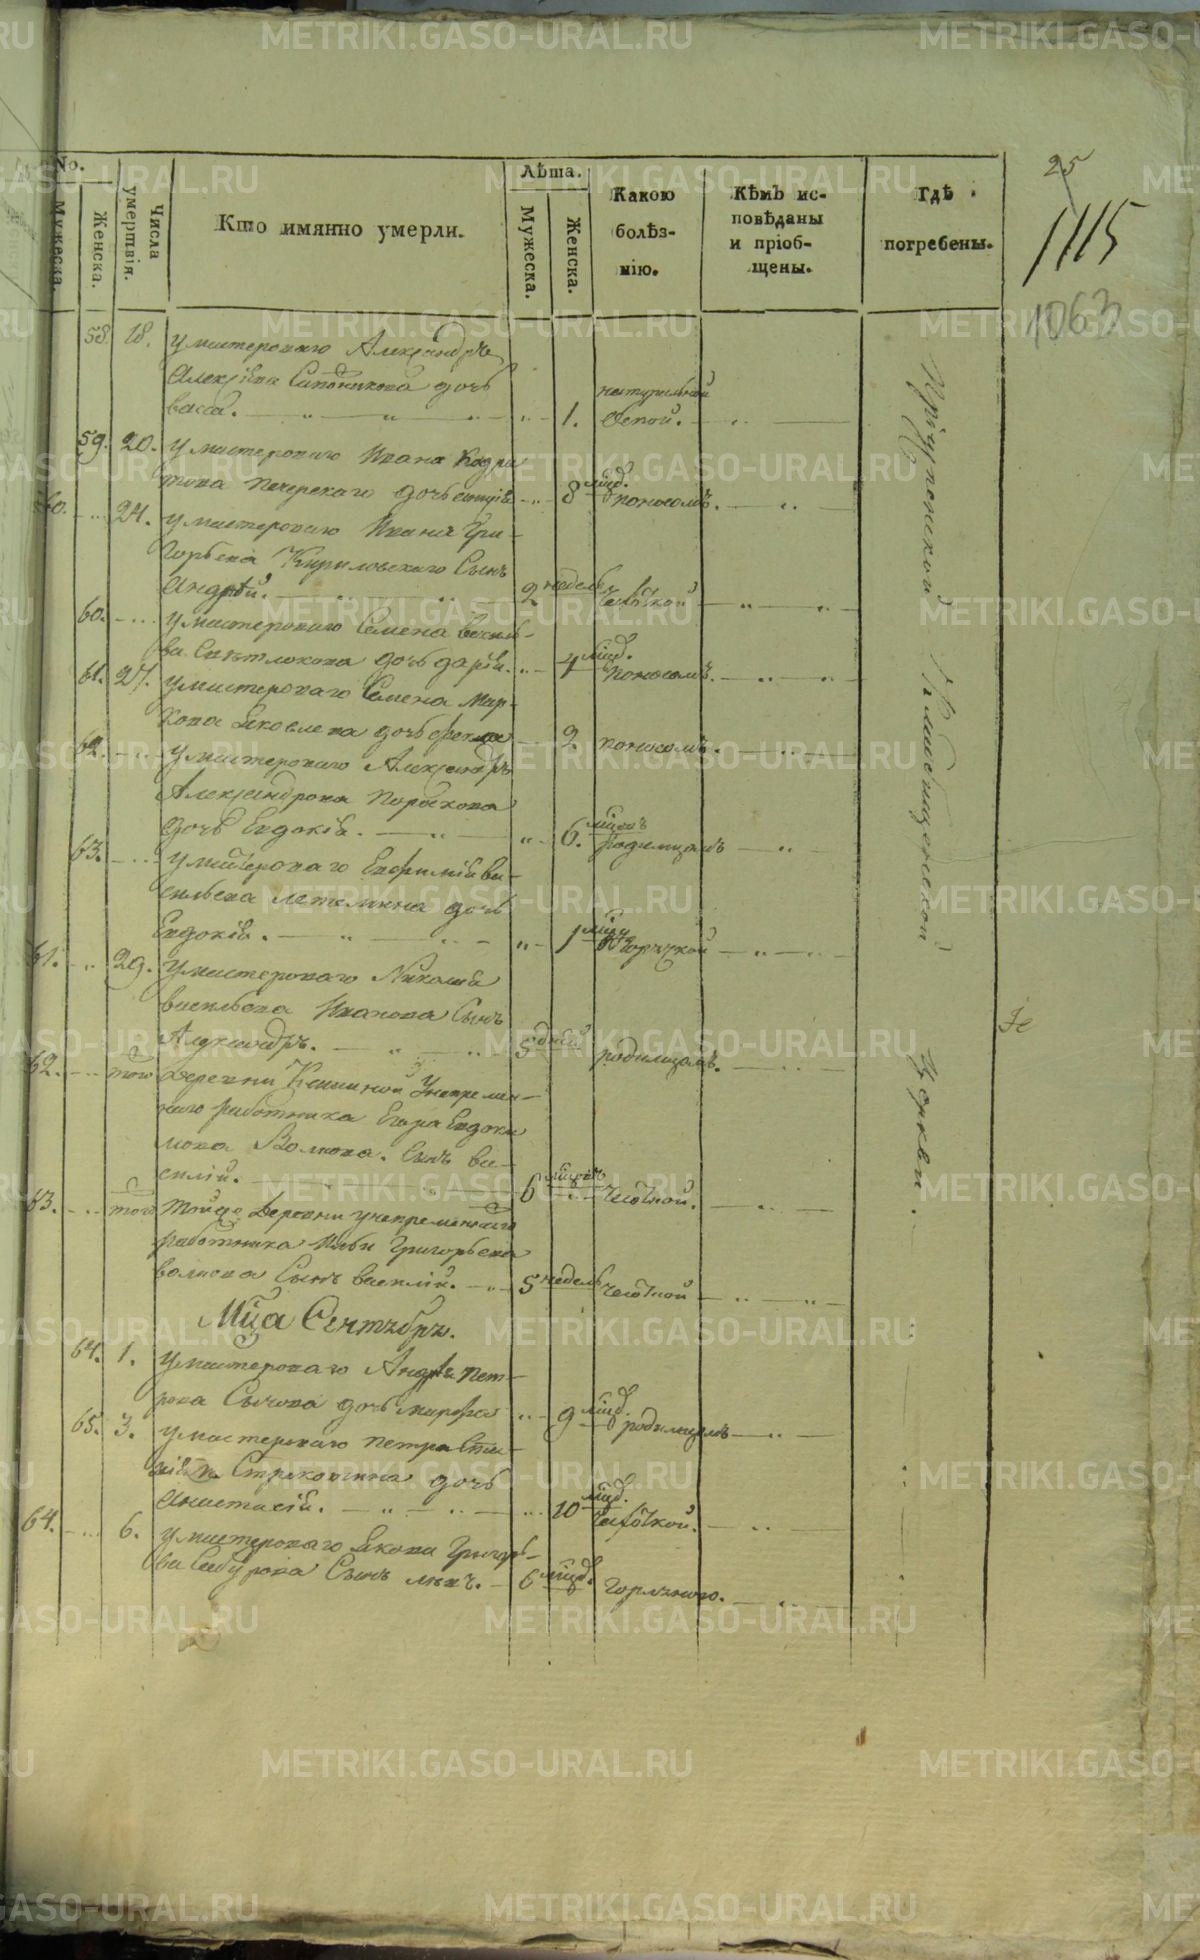 25
1115
1063
No.
Мужеска.
Женска.
Числа умершвія.
Кто имянно умерли.
Лѣта.
Мужеска.
Женска.
Какою болѣз-нію.
Кѣмъ ис-повѣданы и пріоб-щены.
Гдѣ погребены.
58. 18. у мастероваго Александра
Алексѣева Сапожникова дочь натуральной
васса. 1. оспой.
59. 20. у мастероваго Ивана Кодра
това Печерскаго дочь 8 мцъ. поносомъ.
60. 24. у мастероваго Ивана Гри-
горьева Кириловскаго Сынъ
Андрей. 2 недель чесоткой
60. у мастероваго Семена василь-
ва Светлокова дочь дарія. 4 мцъ. поносомъ.
61. 27. у мастероваго Семена Мар-
кова Яковлева дочь фекла 2. поносомъ.
62. у мастероваго Александра
Александрова дочь Евдокія. 6. родимцомъ
63. у мастероваго Ефимія ва-
сильева летемина дочь
Евдокія. 1 горячкой
61. 29. у мастероваго Николая
васильева Иванова Сынъ
Александръ. 5 дней родимцомъ.
62. того Деревни у непремен-
наго работника Егора Евдоки
мова Волкова. Сынъ ва-
силій. 6 чесоткой.
63. того тойже Деревни у непременнаго
работника Ильи Григорьева
волкова Сынъ василій. 5 недель чесоткой
Мца Сентября.
64. 1. у мастероваго Андрея Пет-
рова Сычова дочь марфа 9 мцъ. родимцомъ
65. 3. у мастероваго Петра
дочь
Анастасія. 10 мцъ. чесоткой.
64. 6. у мастероваго Якова Григорь-
ва Сабурова Сынъ левъ. 6 мцъ. горячкою.
церкви.
METRIKI.GASO-URAL.RU